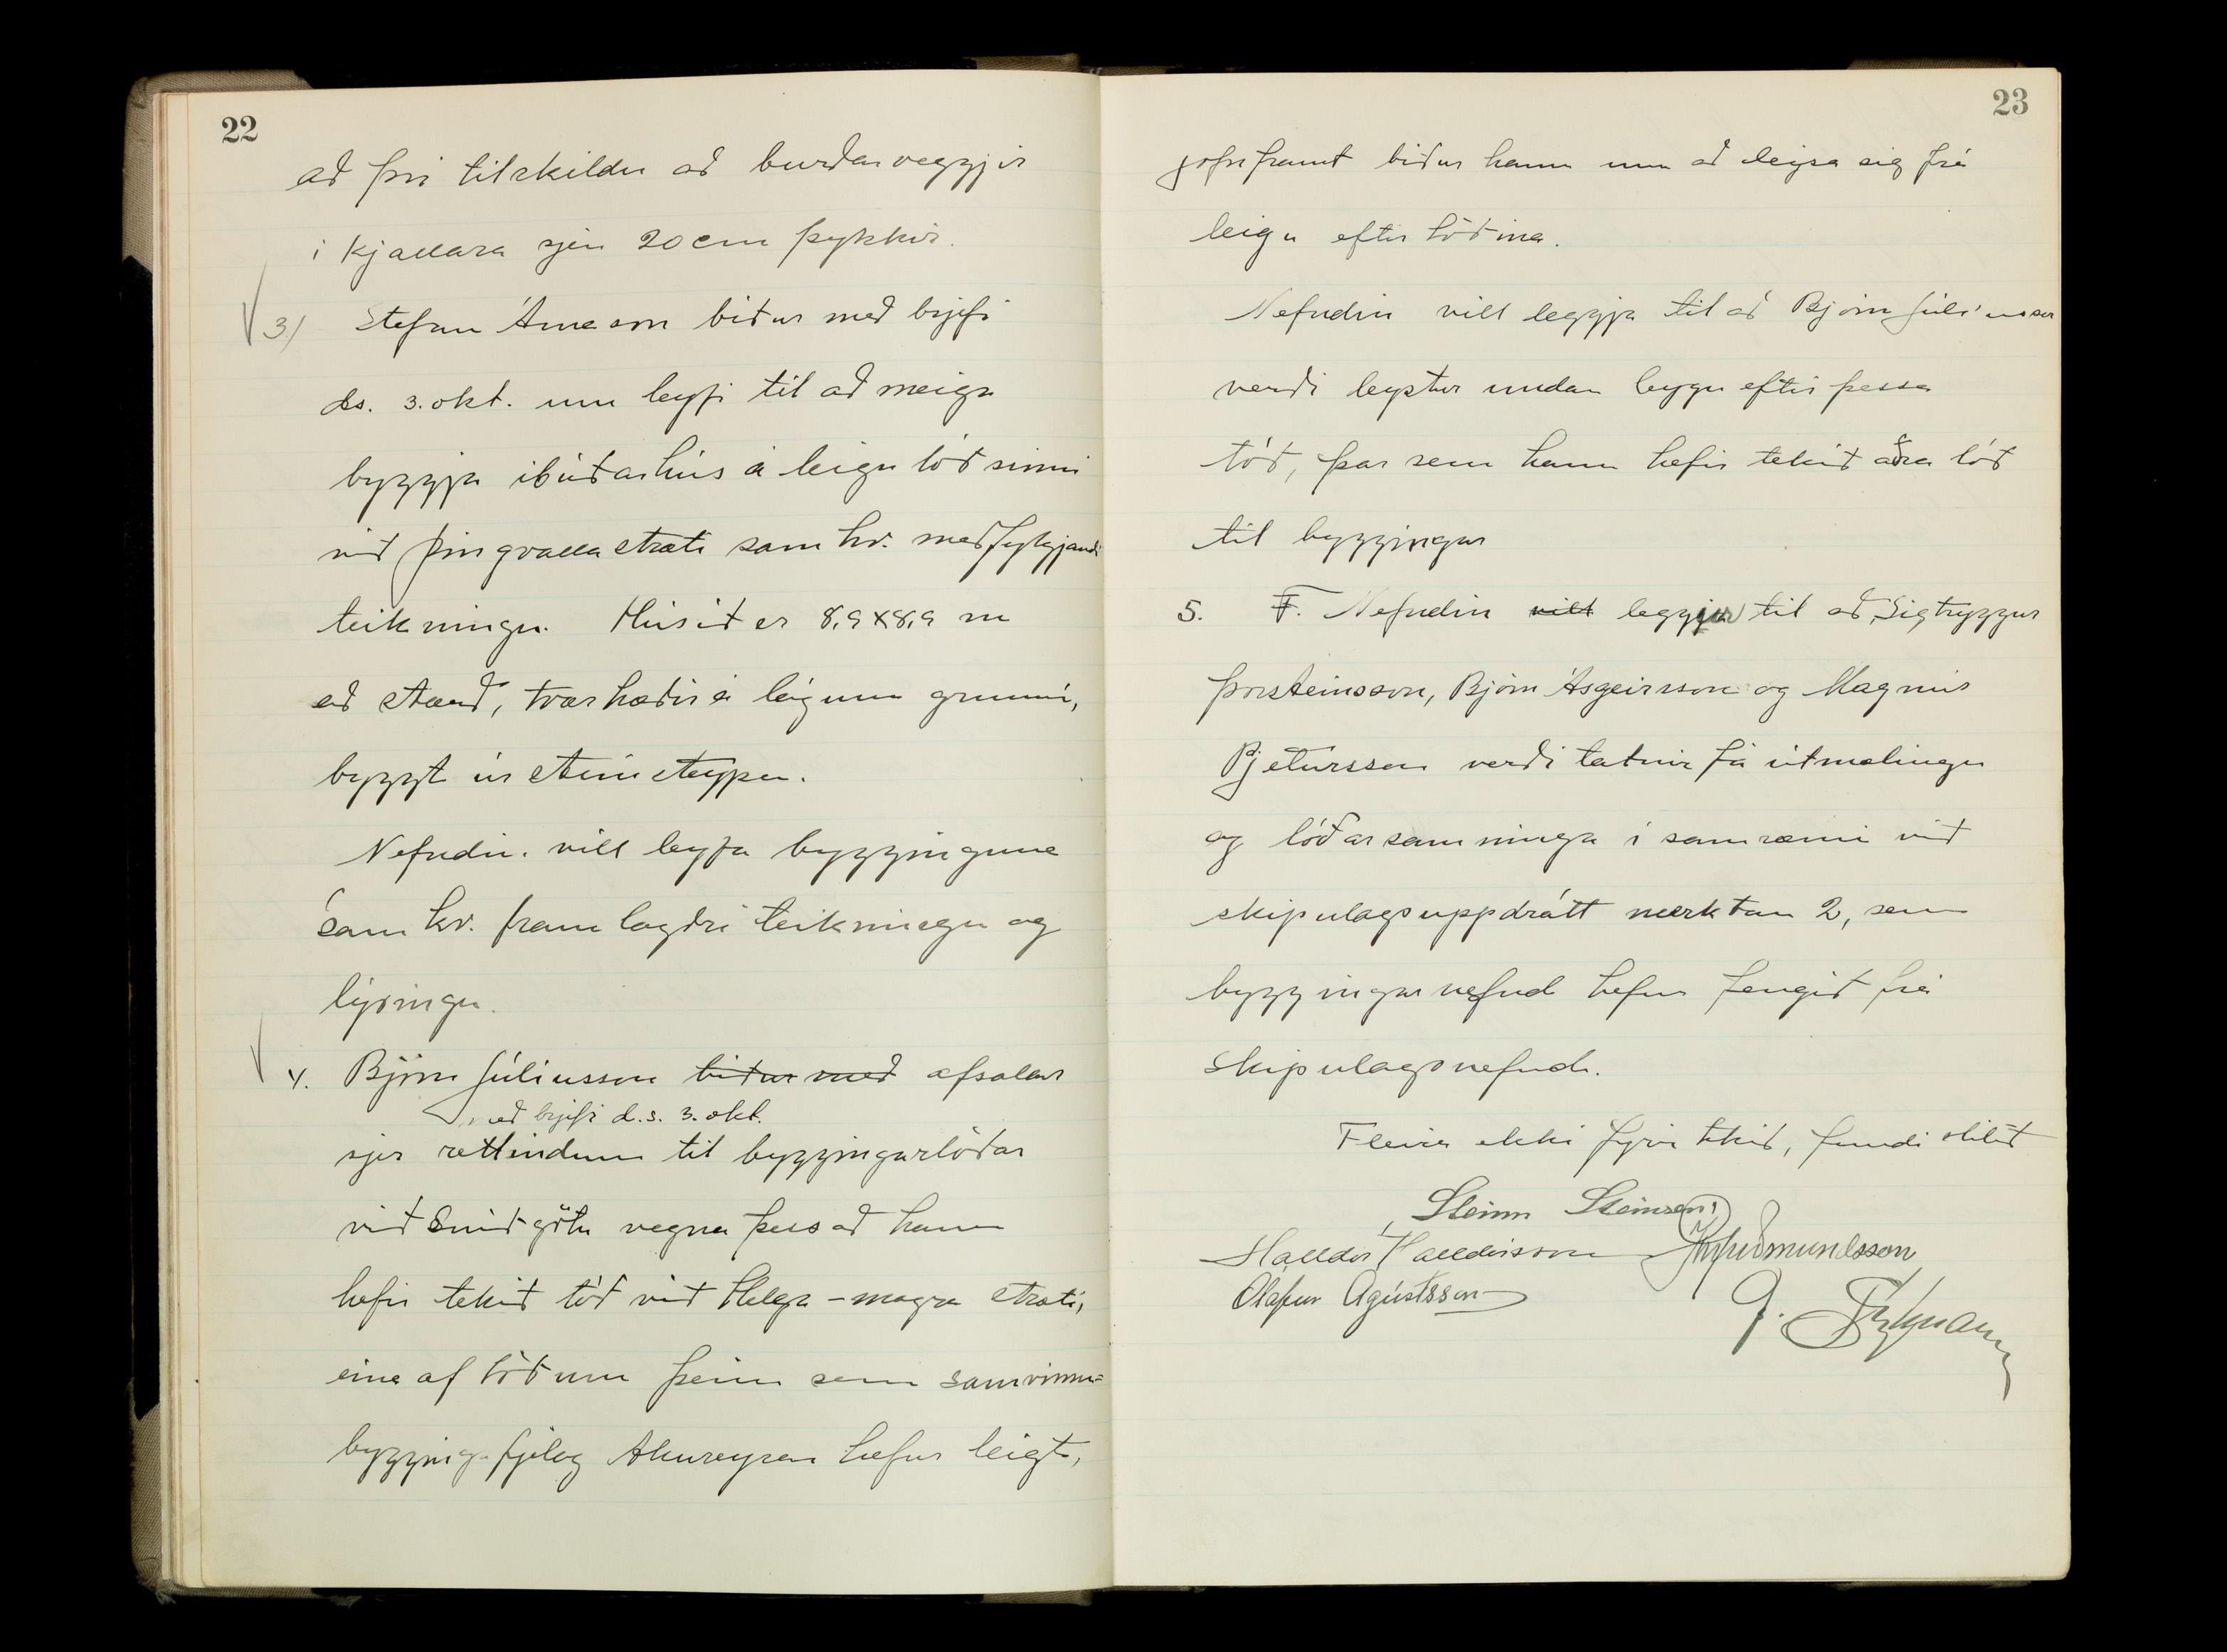 22
að því tilskildu að burðarveggjir
í kjallara sjeu 20 cm þykkir.
3) Stefán Árnason biður með brjefi
ds. 3. okt. um leyfi til að meiga
byggja íbúðarhús á leigulóð sinni
við Þingvallastræti samkv. meðfylgjandi
teikningu. Húsið er 8,9 x 8,9 m
að stærð, tvær hæðir á lágum grunni,
byggt úr steinsteypu.
Nefndin vill leyfa bygginguna
samkv. framlagðri teikningu og
lýsingu.
4. Björn Júlíusson biður með afsalar
með brjefi d.s. 3. okt.
sjer rettindum til byggingarlóðar
við Sniðgötu vegna þess að hann
hefir tekið lóð við Helga-magra stræti,
eina af lóðum þeim sem samvinnu=
byggingafjelag Akureyrar hefur leigt,
23
jafnframt biður hann um að leysa sig frá
leigu eftir lóðina.
Nefndin vill leggja til að Björn Júlíusson
verði leystur undan leygu eftir þessa
lóð, þar sem hann hefir tekið aðra lóð
til byggingar
5. F. Nefndin vill leggjur til að Sigtryggur
Þorsteinsson, Björn Ásgeirsson og Magnús
Pjetursson verði látnir fá útmælingu
og lóðarsamninga í samræmi við
skipulagsuppdrátt merktan 2, sem
byggingarnefnd hefur fengið frá
skipulagsnefnd.
Fleira ekki fyrir tekið, fundi slitið
Steinn Steinsen
Halldór Halldórsson
Ólafur Ágústsson